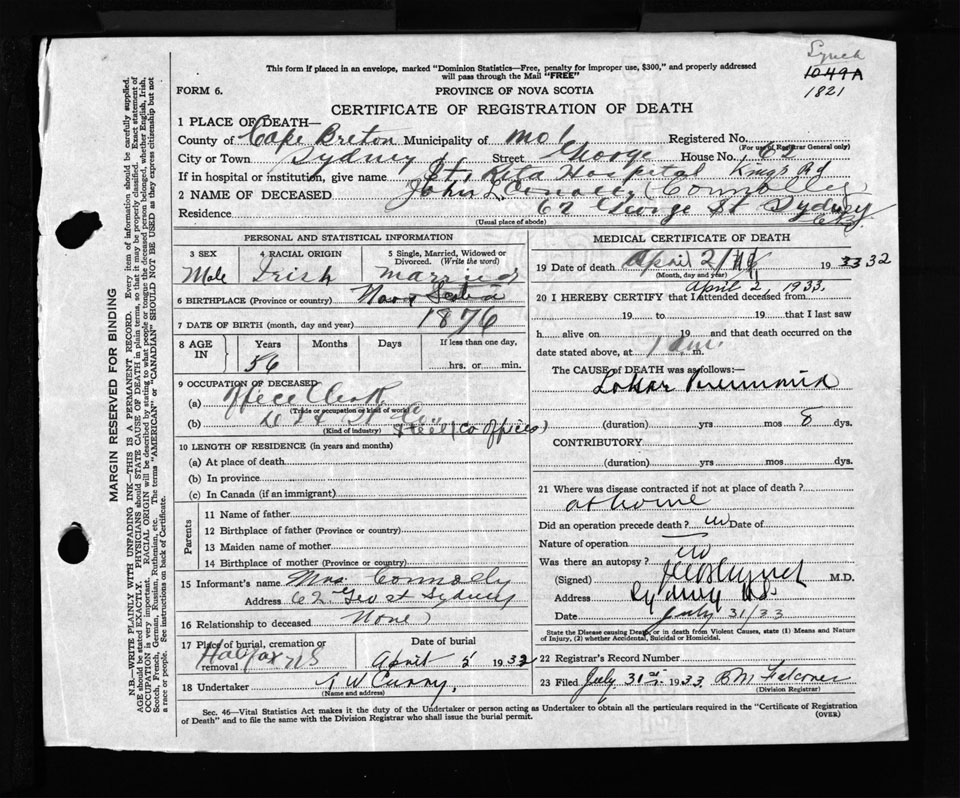 Lynch
1049A
1821
This form if placed in an envelope, marked "Dominion Statistics—Free, penalty for improper use, $300," and properly addressed
will pass through the Mail "FREE"
FORM 6. PROVINCE OF NOVA SCOTIA
CERTIFICATE OF REGISTRATION OF DEATH
1 PLACE OF DEATH—
County of Cape Breton Municipality of Registered No.
(For use of Registrar General only)
City or Town Sydney Street George House No. 62
If in hospital or institution, give name St. Rita Hospital Kings Rd
2 NAME OF DECEASED John (Connolly)
Residence 62 George St Sydney
(Usual place of abode) C.B.
PERSONAL AND STATISTICAL INFORMATION
3 SEX 4 RACIAL ORIGIN 5 Single, Married, Widowed or Divorced. (Write the word)
Male Irish married
6 BIRTHPLACE (Province or country) Nova Scotia
7 DATE OF BIRTH (month, day and year) 1876
8 AGE IN Years Months Days If less than one day,
56 hrs. or min.
9 OCCUPATION OF DECEASED
(a) Clerk
(Trade or occupation or kind of work)
(b) Steel (Co Offices)
(Kind of industry)
10 LENGTH OF RESIDENCE (in years and months)
(a) At place of death
(b) In province
(c) In Canada (if an immigrant)
Parents
11 Name of father
12 Birthplace of father (Province or country)
13 Maiden name of mother
14 Birthplace of mother (Province or country)
15 Informant's name Mrs Connolly
Address 62 Geo St Sydney
16 Relationship to deceased None
17 Place of burial, cremation or removal Halifax NS Date of burial April 5 1932
18 Undertaker T W Curry
(Name and address)
MEDICAL CERTIFICATE OF DEATH
19 Date of death April 2 1932
(Month, day and year)
April 2, 1933.
20 I HEREBY CERTIFY that I attended deceased from
19 to 19 that I last saw
h alive on 19 and that death occurred on the
date stated above, at 1 a.m.
The CAUSE OF DEATH was as follows:
Lobar Pneumonia
(duration) yrs mos 8 dys.
CONTRIBUTORY
(duration) yrs. mos. dys.
21 Where was disease contracted if not at place of death?
at home
Did an operation precede death? no Date of
Nature of operation
Was there an autopsy? no
(Signed) Lynch M.D.
Address Sydney N.S.
Date July 31/33
State the Disease causing Death, or in death from Violent Causes, state (1) Means and Nature of Injury, (2) whether Accidental, Suicidal or Homicidal.
22 Registrar's Record Number
23 Filed July 31st 1933 B M Falconer
(Division Registrar)
Sec. 46—Vital Statistics Act makes it the duty of the Undertaker or person acting as Undertaker to obtain all the particulars required in the "Certificate of Registration
of Death" and to file the same with the Division Registrar who shall issue the burial permit. (OVER)
MARGIN RESERVED FOR BINDING
N.B.—WRITE PLAINLY WITH UNFADING INK—THIS IS A PERMANENT RECORD. Every item of information should be carefully supplied.
AGE should be stated EXACTLY. PHYSICIANS should STATE CAUSE OF DEATH in plain terms, so that it may be properly classified. Exact statement of
OCCUPATION is very important. RACIAL ORIGIN will be described by stating to what people or tongue the deceased person belonged, whether English, Irish,
Scotch, French, German, Russian, Ruthenian, etc. The terms "AMERICAN" or "CANADIAN" SHOULD NOT BE USED as they express citizenship but not
a race or people. See instructions on back of Certificate.